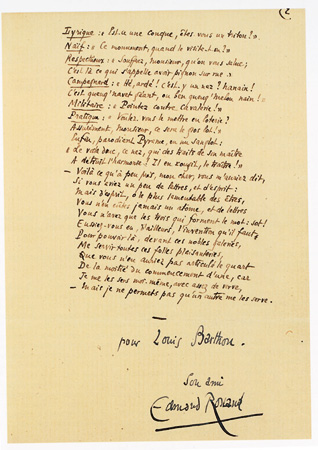 (2
Lyrique : « Est-ce une conque, êtes-vous un triton ? »
Naïf : « Ce monument, quand le visite-t-on ? »
Respectueux : « Souffrez, monsieur, qu'on vous salue ;
C'est là ce qui s'appelle avoir pignon sur rue. »
Campagnard : « Hé, ardé ! C'est-y un nez ? Nanain !
C'est queuqu'navet géant, ou ben queuqu'melon nain ! »
Militaire : « Pointez contre cavalerie ! »
Pratique : « Voulez-vous le mettre en loterie ?
Assurément, monsieur, ce sera le gros lot ! »
Enfin, parodiant Pyrame, en un sanglot :
« Le voilà donc, ce nez, qui des traits de son maître
A détruit l'harmonie ! Il en rougit, le traître ! »
— Voilà ce qu'à peu près, mon cher, vous m'auriez dit,
Si vous aviez un peu de lettres, et d'esprit :
Mais d'esprit, ô le plus lamentable des êtres,
Vous n'en eûtes jamais un atome, et de lettres
Vous n'avez que les trois qui forment le mot : sot !
Eussiez-vous eu, d'ailleurs, l'invention qu'il faut,
Pour pouvoir là, devant ces nobles galeries,
Me servir toutes ces folles plaisanteries,
Que vous n'en auriez pas articulé le quart
De la moitié du commencement d'une, car
Je me les sers moi-même, avec assez de verve,
— Mais je ne permets pas qu'un autre me les serve.
pour Louis Barthou.
Son ami
Edmond Rostand